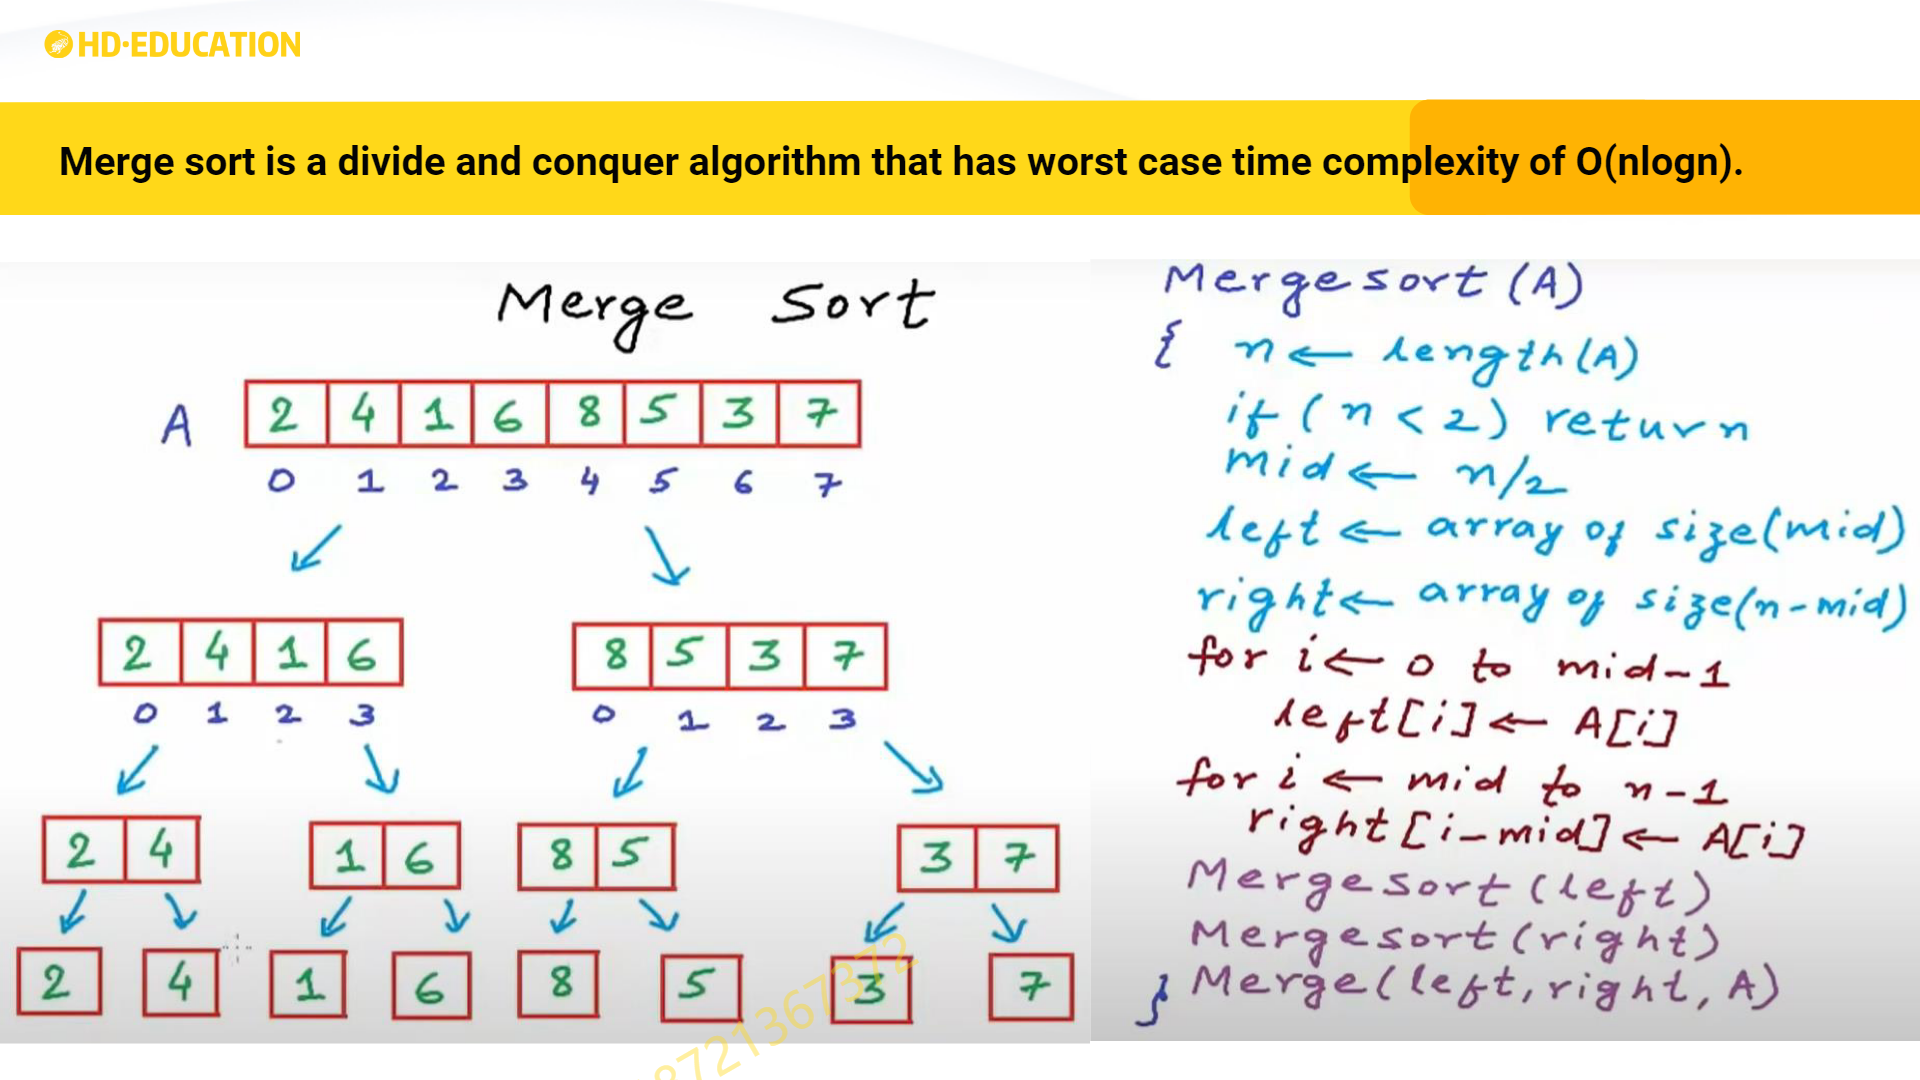 HD·EDUCATION
Merge sort is a divide and conquer algorithm that has worst case time complexity of O(nlogn).
Merge Sort
A 2 4 1 6 8 5 3 7
0 1 2 3 4 5 6 7
2 4 1 6 8 5 3 7
0 1 2 3 0 1 2 3
2 4 1 6 8 5 3 7
2 4 1 6 8 5 3 7
Mergesort(A)
{ n ← length(A)
if (n < 2) return
mid ← n/2
left ← array of size(mid)
right ← array of size(n-mid)
for i ← 0 to mid-1
left[i] ← A[i]
for i ← mid to n-1
right[i-mid] ← A[i]
Mergesort(left)
Mergesort(right)
} Merge(left, right, A)